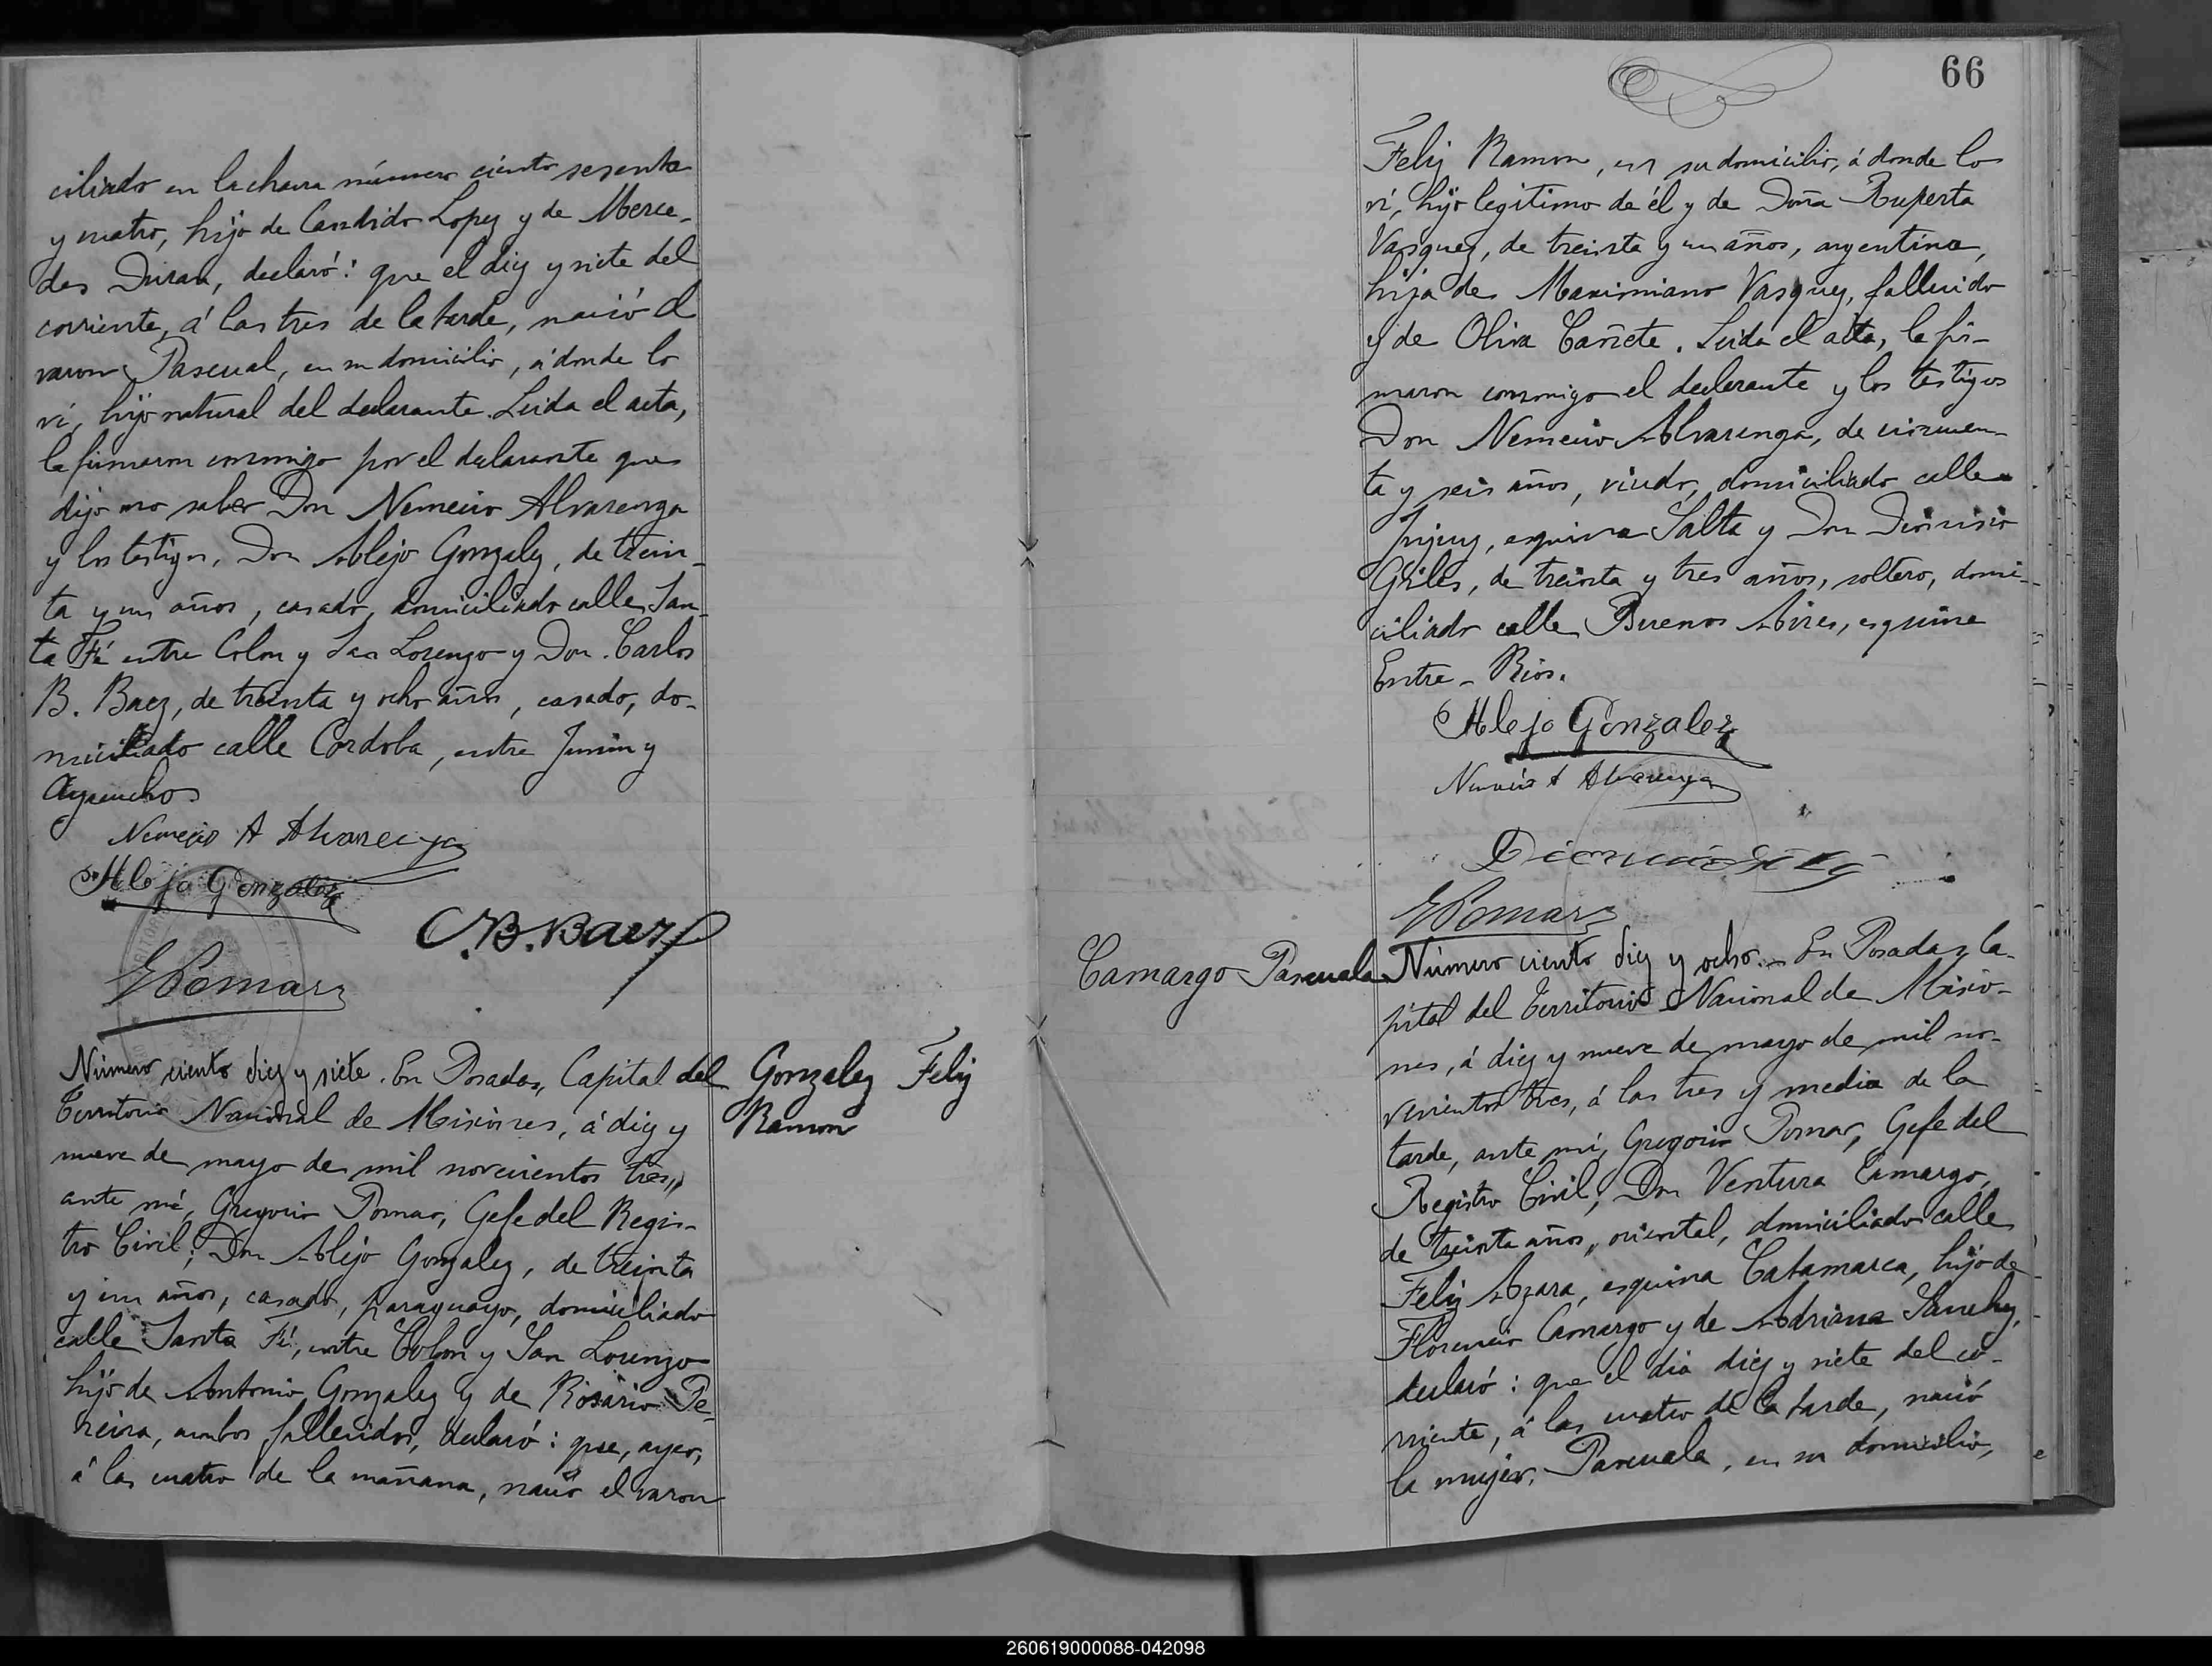 ciliado en la chacra número ciento sesenta
y cuatro, hijo de Candido Lopez y de Merce-
des Duran, declaró: que el diez y siete del
corriente, á las tres de la tarde, nació el
varon Pascual, en su domicilio, á donde lo
ví, hijo natural del declarante. Leida el acta,
la firmaron conmigo por el declarante que
dijo no saber Don Nemecio Alvarenga
y los testigos, Don Alejo Gonzalez, de trein-
ta y un años, casado, domiciliado calle San-
ta Fé entre Colon y San Lorenzo y Don Carlos
B. Baez, de treinta y ocho años, casado, do-
miciliado calle Cordoba, entre Junin y
Ayacucho
Nemecio A Alvarenga
Alejo Gonzalez
C.B. Baez
GPomar
Número ciento diez y siete. En Posadas, Capital del
Territorio Nacional de Misiones, á diez y
nueve de mayo de mil novecientos tres,
ante mí, Gregorio Pomar, Gefe del Regis-
tro Civil; Don Alejo Gonzalez, de treinta
y un años, casado, paraguayo, domiciliado
calle Santa Fé, entre Colon y San Lorenzo
hijo de Antonio Gonzalez y de Rosario Pe-
reira, ambos fallecidos, declaró: que, ayer,
á las cuatro de la mañana, nació el varon
Gonzalez Feliz
Ramon
66
Feliz Ramon, en su domicilio, á donde lo
ví, hijo legitimo de él y de Doña Ruperta
Vasquez, de treinta y un años, argentina,
hija de Maximiano Vasquez, fallecido
y de Oliva Cañete. Leida el acta, la fir-
maron conmigo el declarante y los testigos
Don Nemecio Alvarenga, de cincuen-
ta y seis años, viudo, domiciliado calle
Jujuy, esquina Salta y Don Dionisio
Giles, de treinta y tres años, soltero, domi-
ciliado calle Buenos Aires, esquina
Entre-Rios.
Alejo Gonzalez
Nemecio A Alvarenga
GPomar
Camargo Pascuala
Número ciento diez y ocho.- En Posadas, Ca-
pital del Territorio Nacional de Misio-
nes, á diez y nueve de mayo de mil no-
vecientos tres, á las tres y media de la
tarde, ante mí, Gregorio Pomar, Gefe del
Registro Civil; Don Ventura Camargo,
de treinta años, oriental, domiciliado calle
Feliz Azara, esquina Catamarca, hijo de
Florencio Camargo y de Adriana Sanchez,
declaró: que el dia diez y siete del co-
rriente, á las cuatro de la tarde, nació
la mujer, Pascuala, en su domicilio,
260619000088-042098